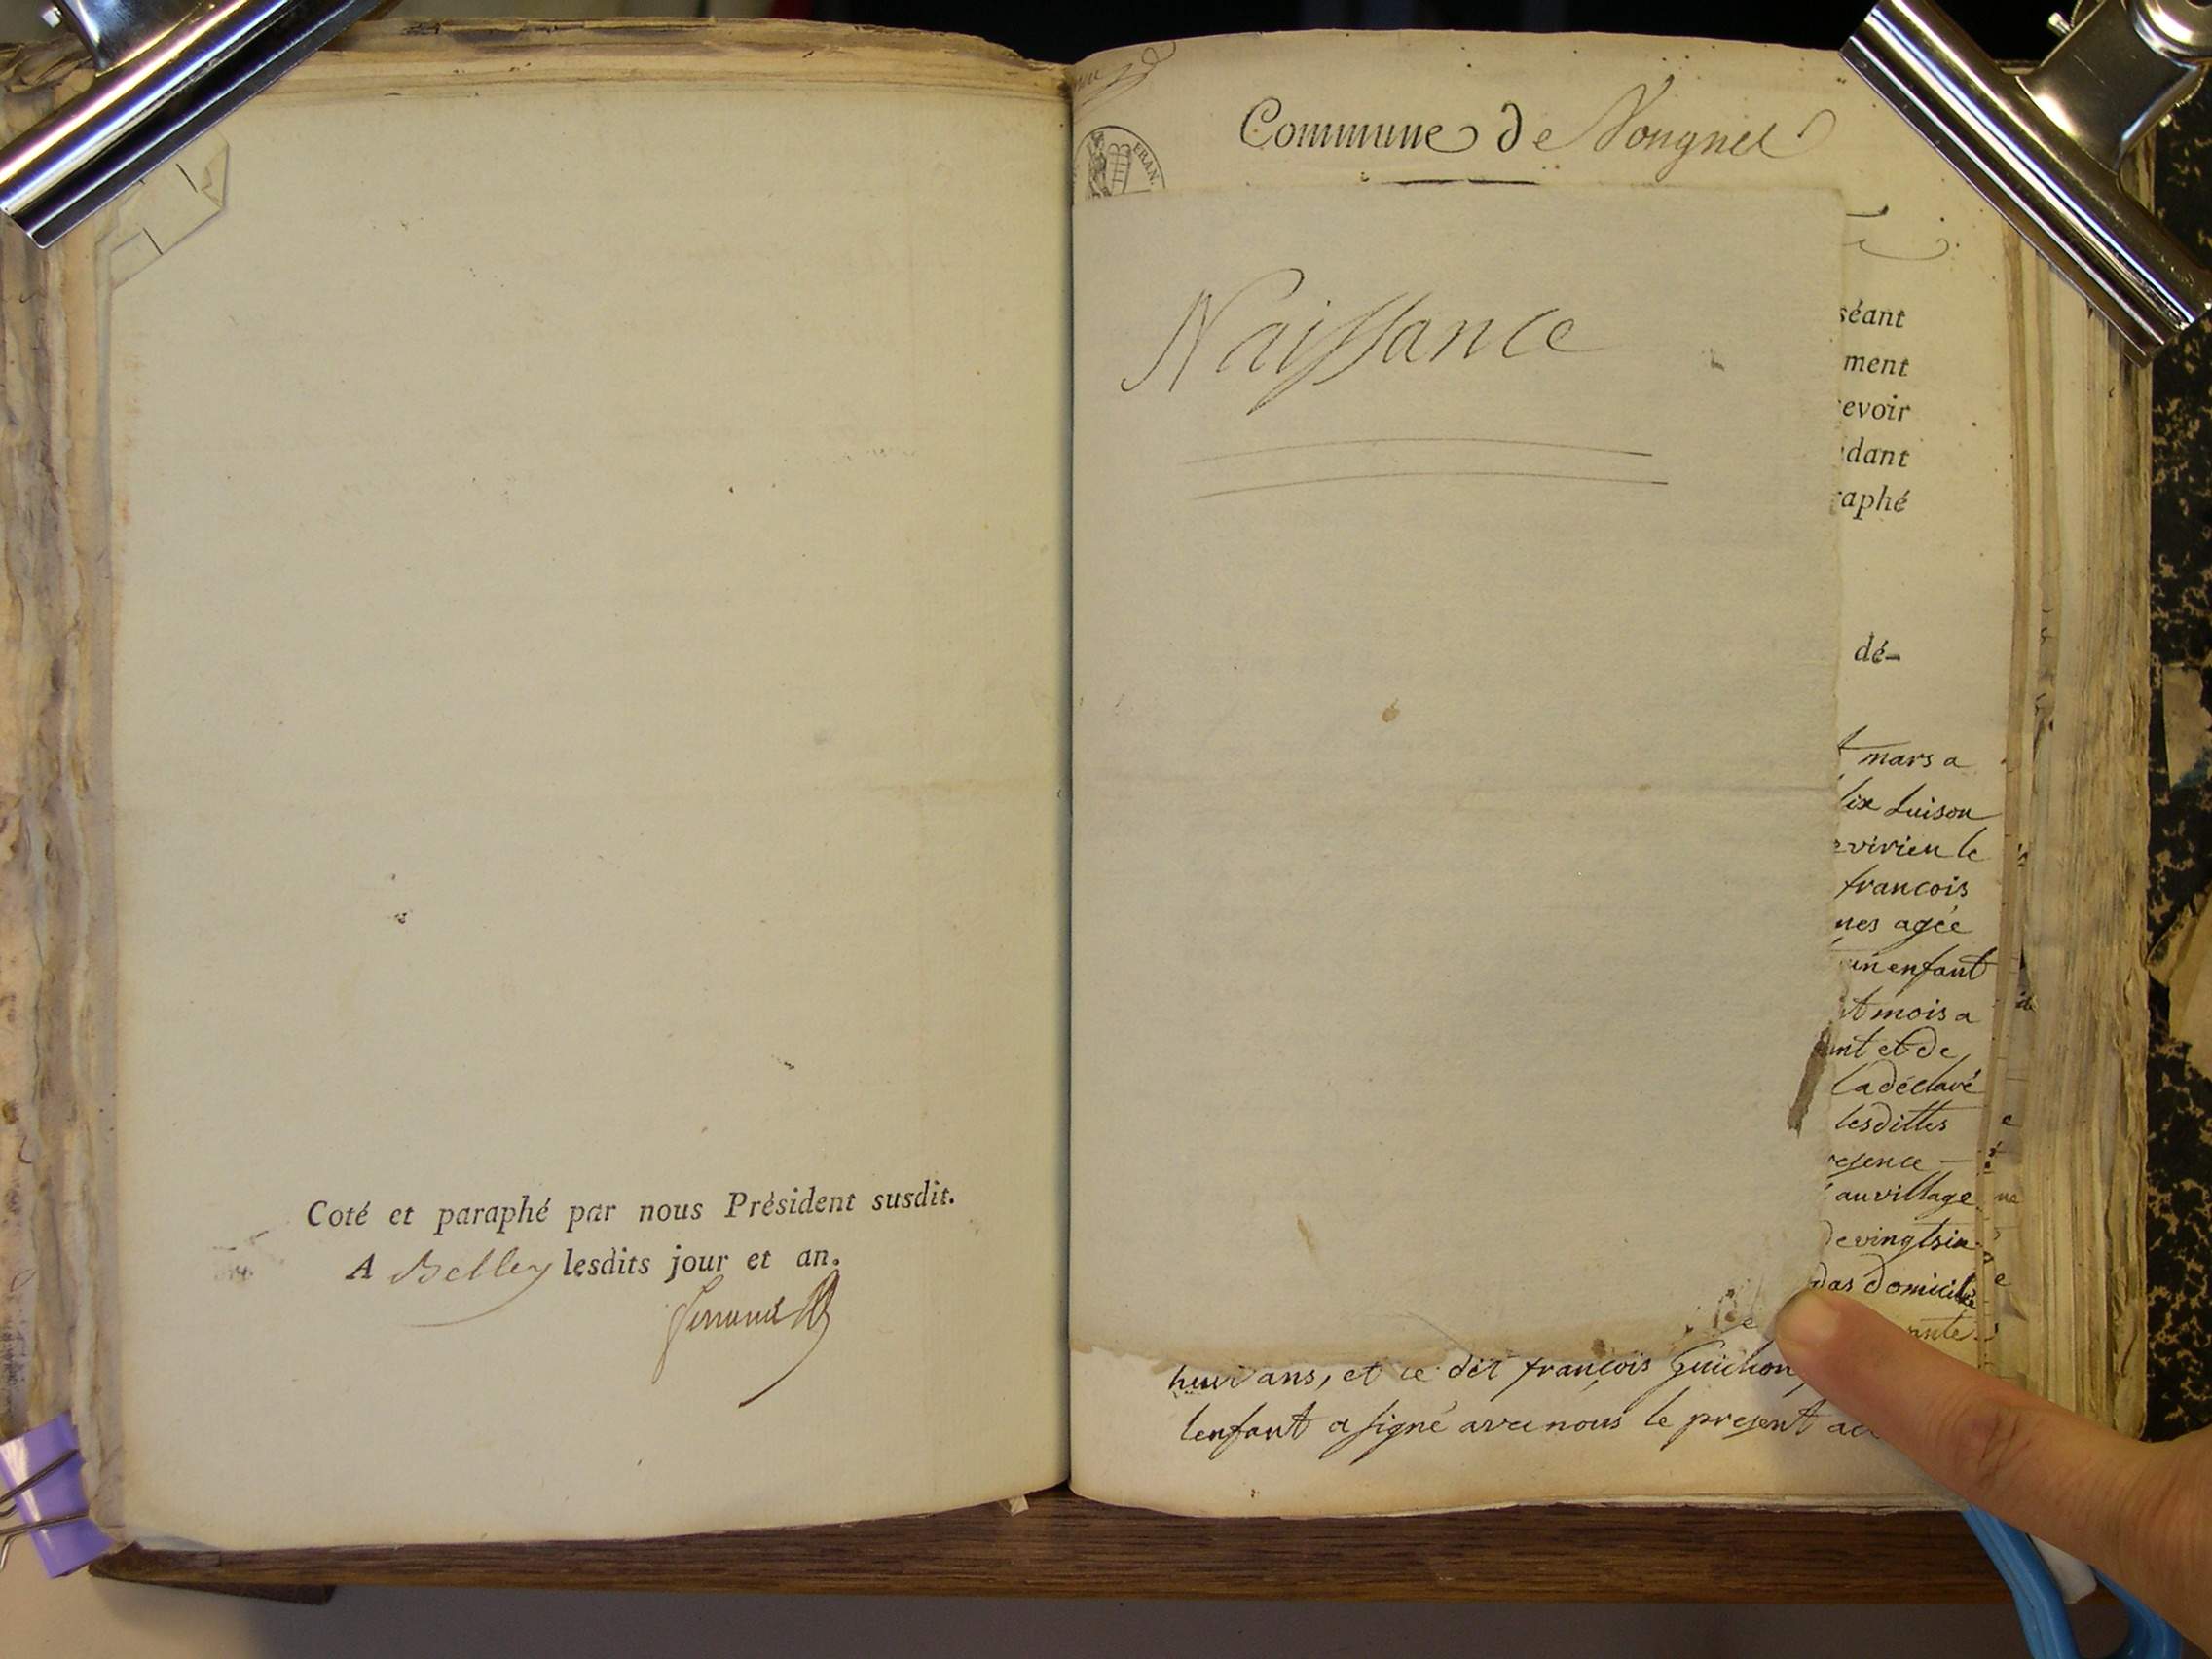 Coté et paraphé par nous Président susdit.
A Belley lesdits jour et an.
Commune de
FRAN.
Naissance
séant
ment
evoir
dant
raphé
dé-
mars a
lix Luison
virieu le
francois
nes agée
un enfant
mois a
ant et de
la déclaré
lesdittes
resence
au village
de vingt six
domicilié
ans, et le dit françois Guichon
lenfant a signé avec nous le present ac